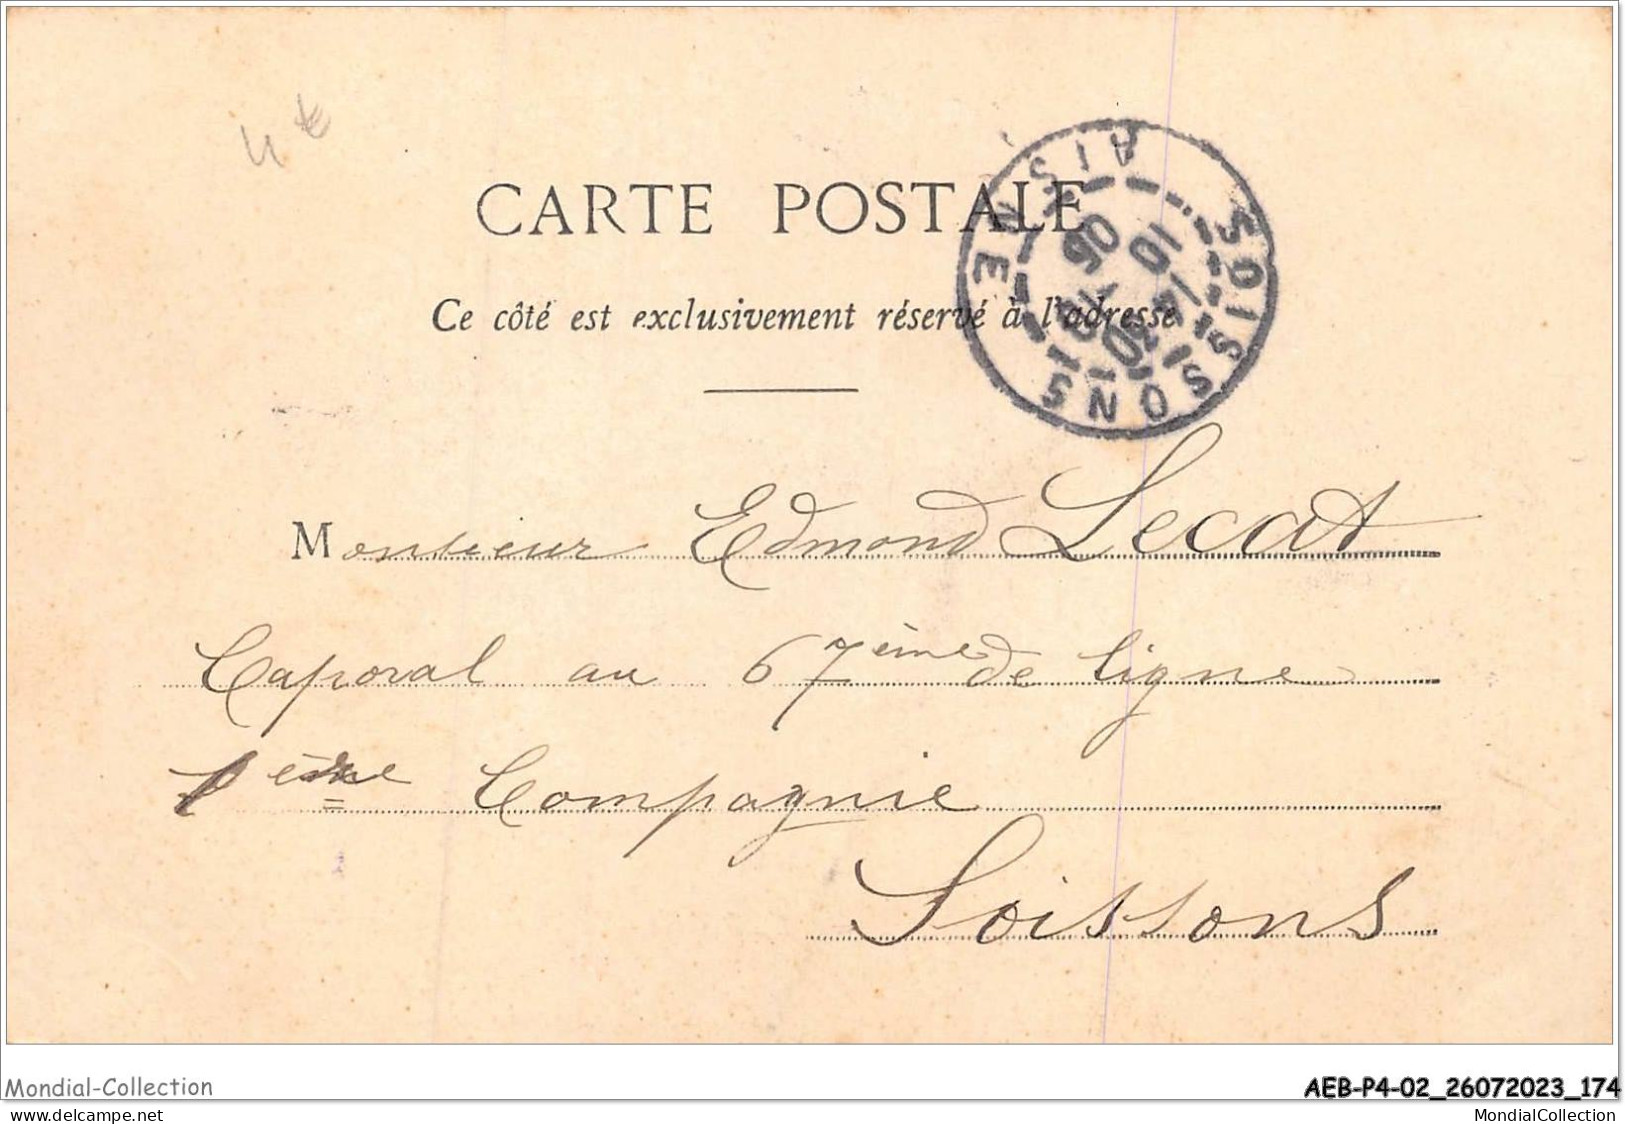 4€
CARTE POSTALE
Ce côté est exclusivement réservé à l'adresse
SOISSONS AISNE
10
14
05
Monsieur Edmond Lecat
Caporal au 67ème de ligne
1ère Compagnie
Soissons
Mondial-Collection
AEB-P4-02_26072023_174
www.delcampe.net
MondialCollection